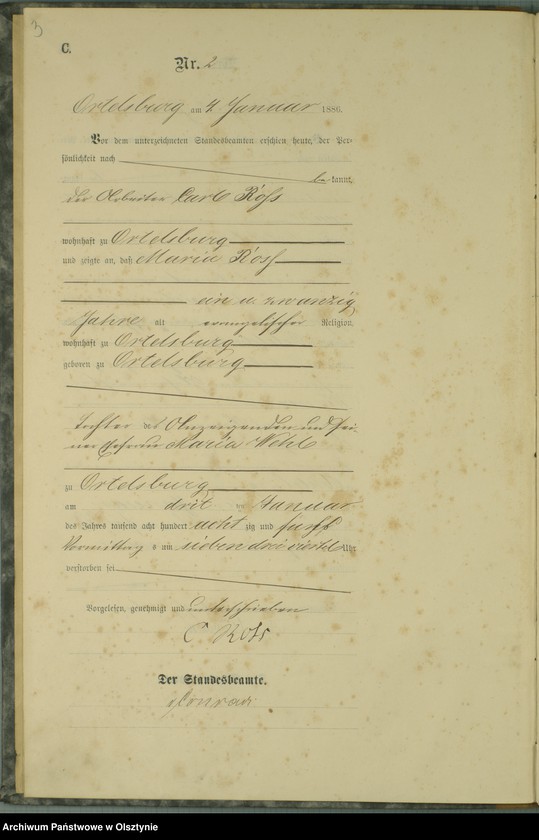 3
C.
Nr. 2
Ortelsburg am 4. Januar 1886.
Vor dem unterzeichneten Standesbeamten erschien heute, der Per-
sönlichkeit nach
be kannt,
der Arbeiter Carl Roß
wohnhaft zu Ortelsburg
und zeigte an, daß Maria Roß
ein u. zwanzig
Jahre alt evangelischer Religion,
wohnhaft zu Ortelsburg
geboren zu Ortelsburg
Tochter des Anzeigenden und sei-
ner Ehefrau Maria
zu Ortelsburg
am Januar
des Jahres tausend acht hundert acht zig und
Vormittags um sieben drei viertel Uhr
verstorben sei
Vorgelesen, genehmigt und unterschrieben
C Roß
Der Standesbeamte.
Archiwum Państwowe w Olsztynie